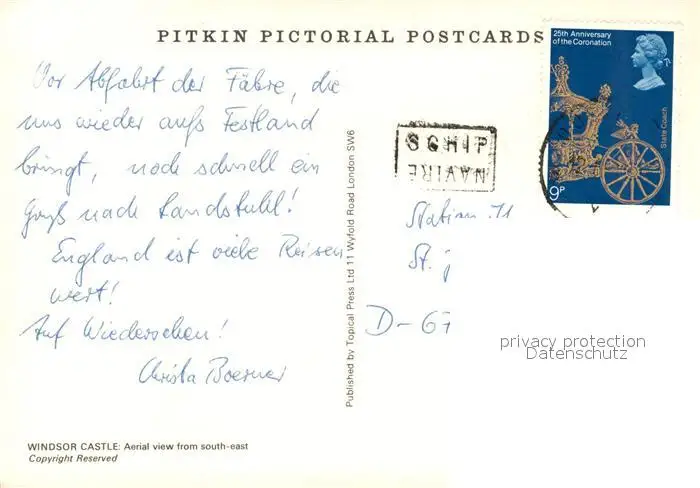 PITKIN PICTORIAL POSTCARDS
25th Anniversary
of the Coronation
State Coach
9P
Vor Abfahrt der Fähre, die
uns wieder aufs Festland
bringt, noch schnell ein
Gruß nach Landstuhl!
England ist viele Reisen
wert!
Auf Wiedersehen!
Christa Boerner
SCHIP
NAVIRE
Station 11
St. j
D-67
Published by Topical Press Ltd 11 Wyfold Road London SW6
privacy protection
Datenschutz
WINDSOR CASTLE: Aerial view from south-east
Copyright Reserved